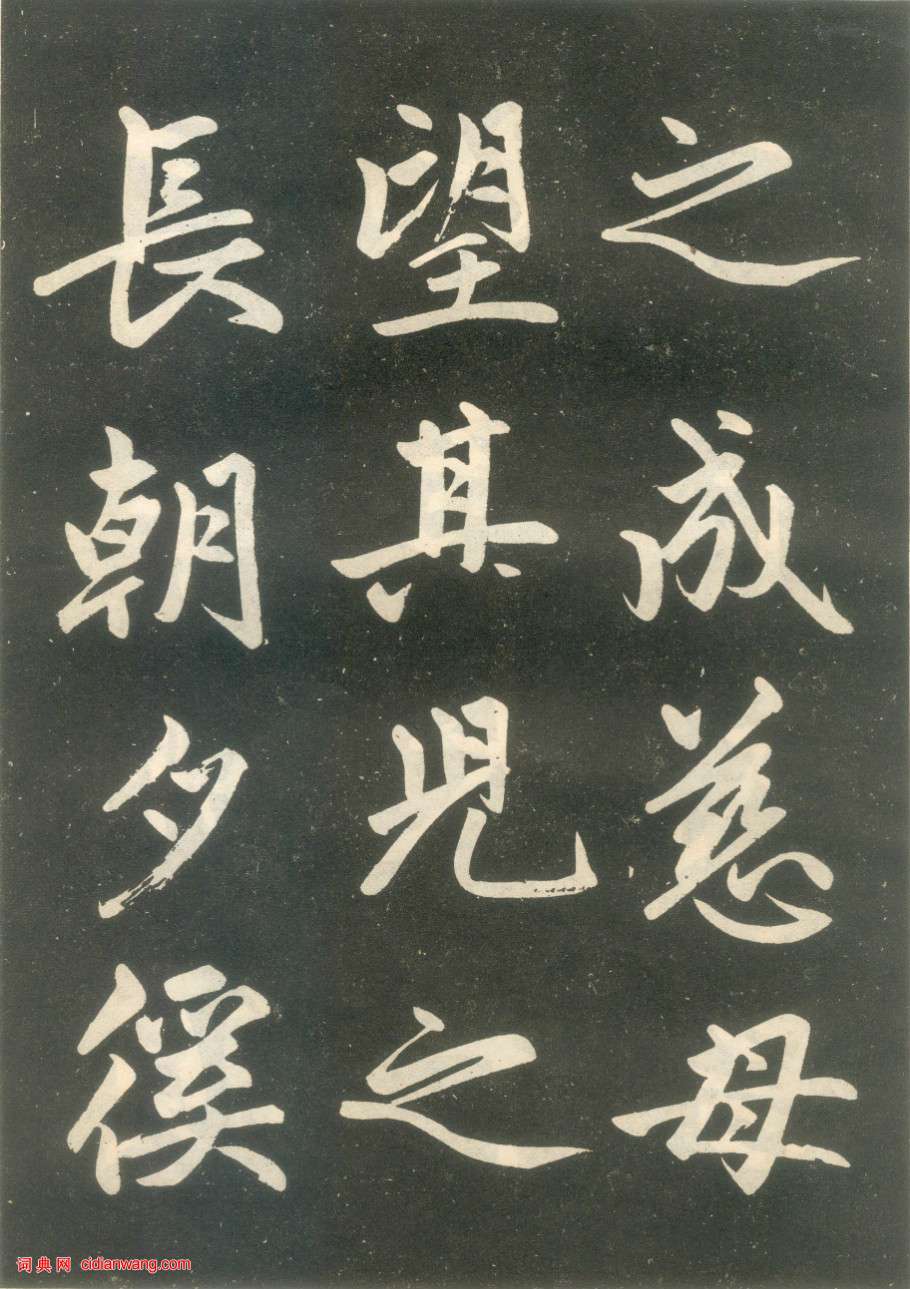 之成慈母
望其兒之
長朝夕傒
词典网 cidianwang.com